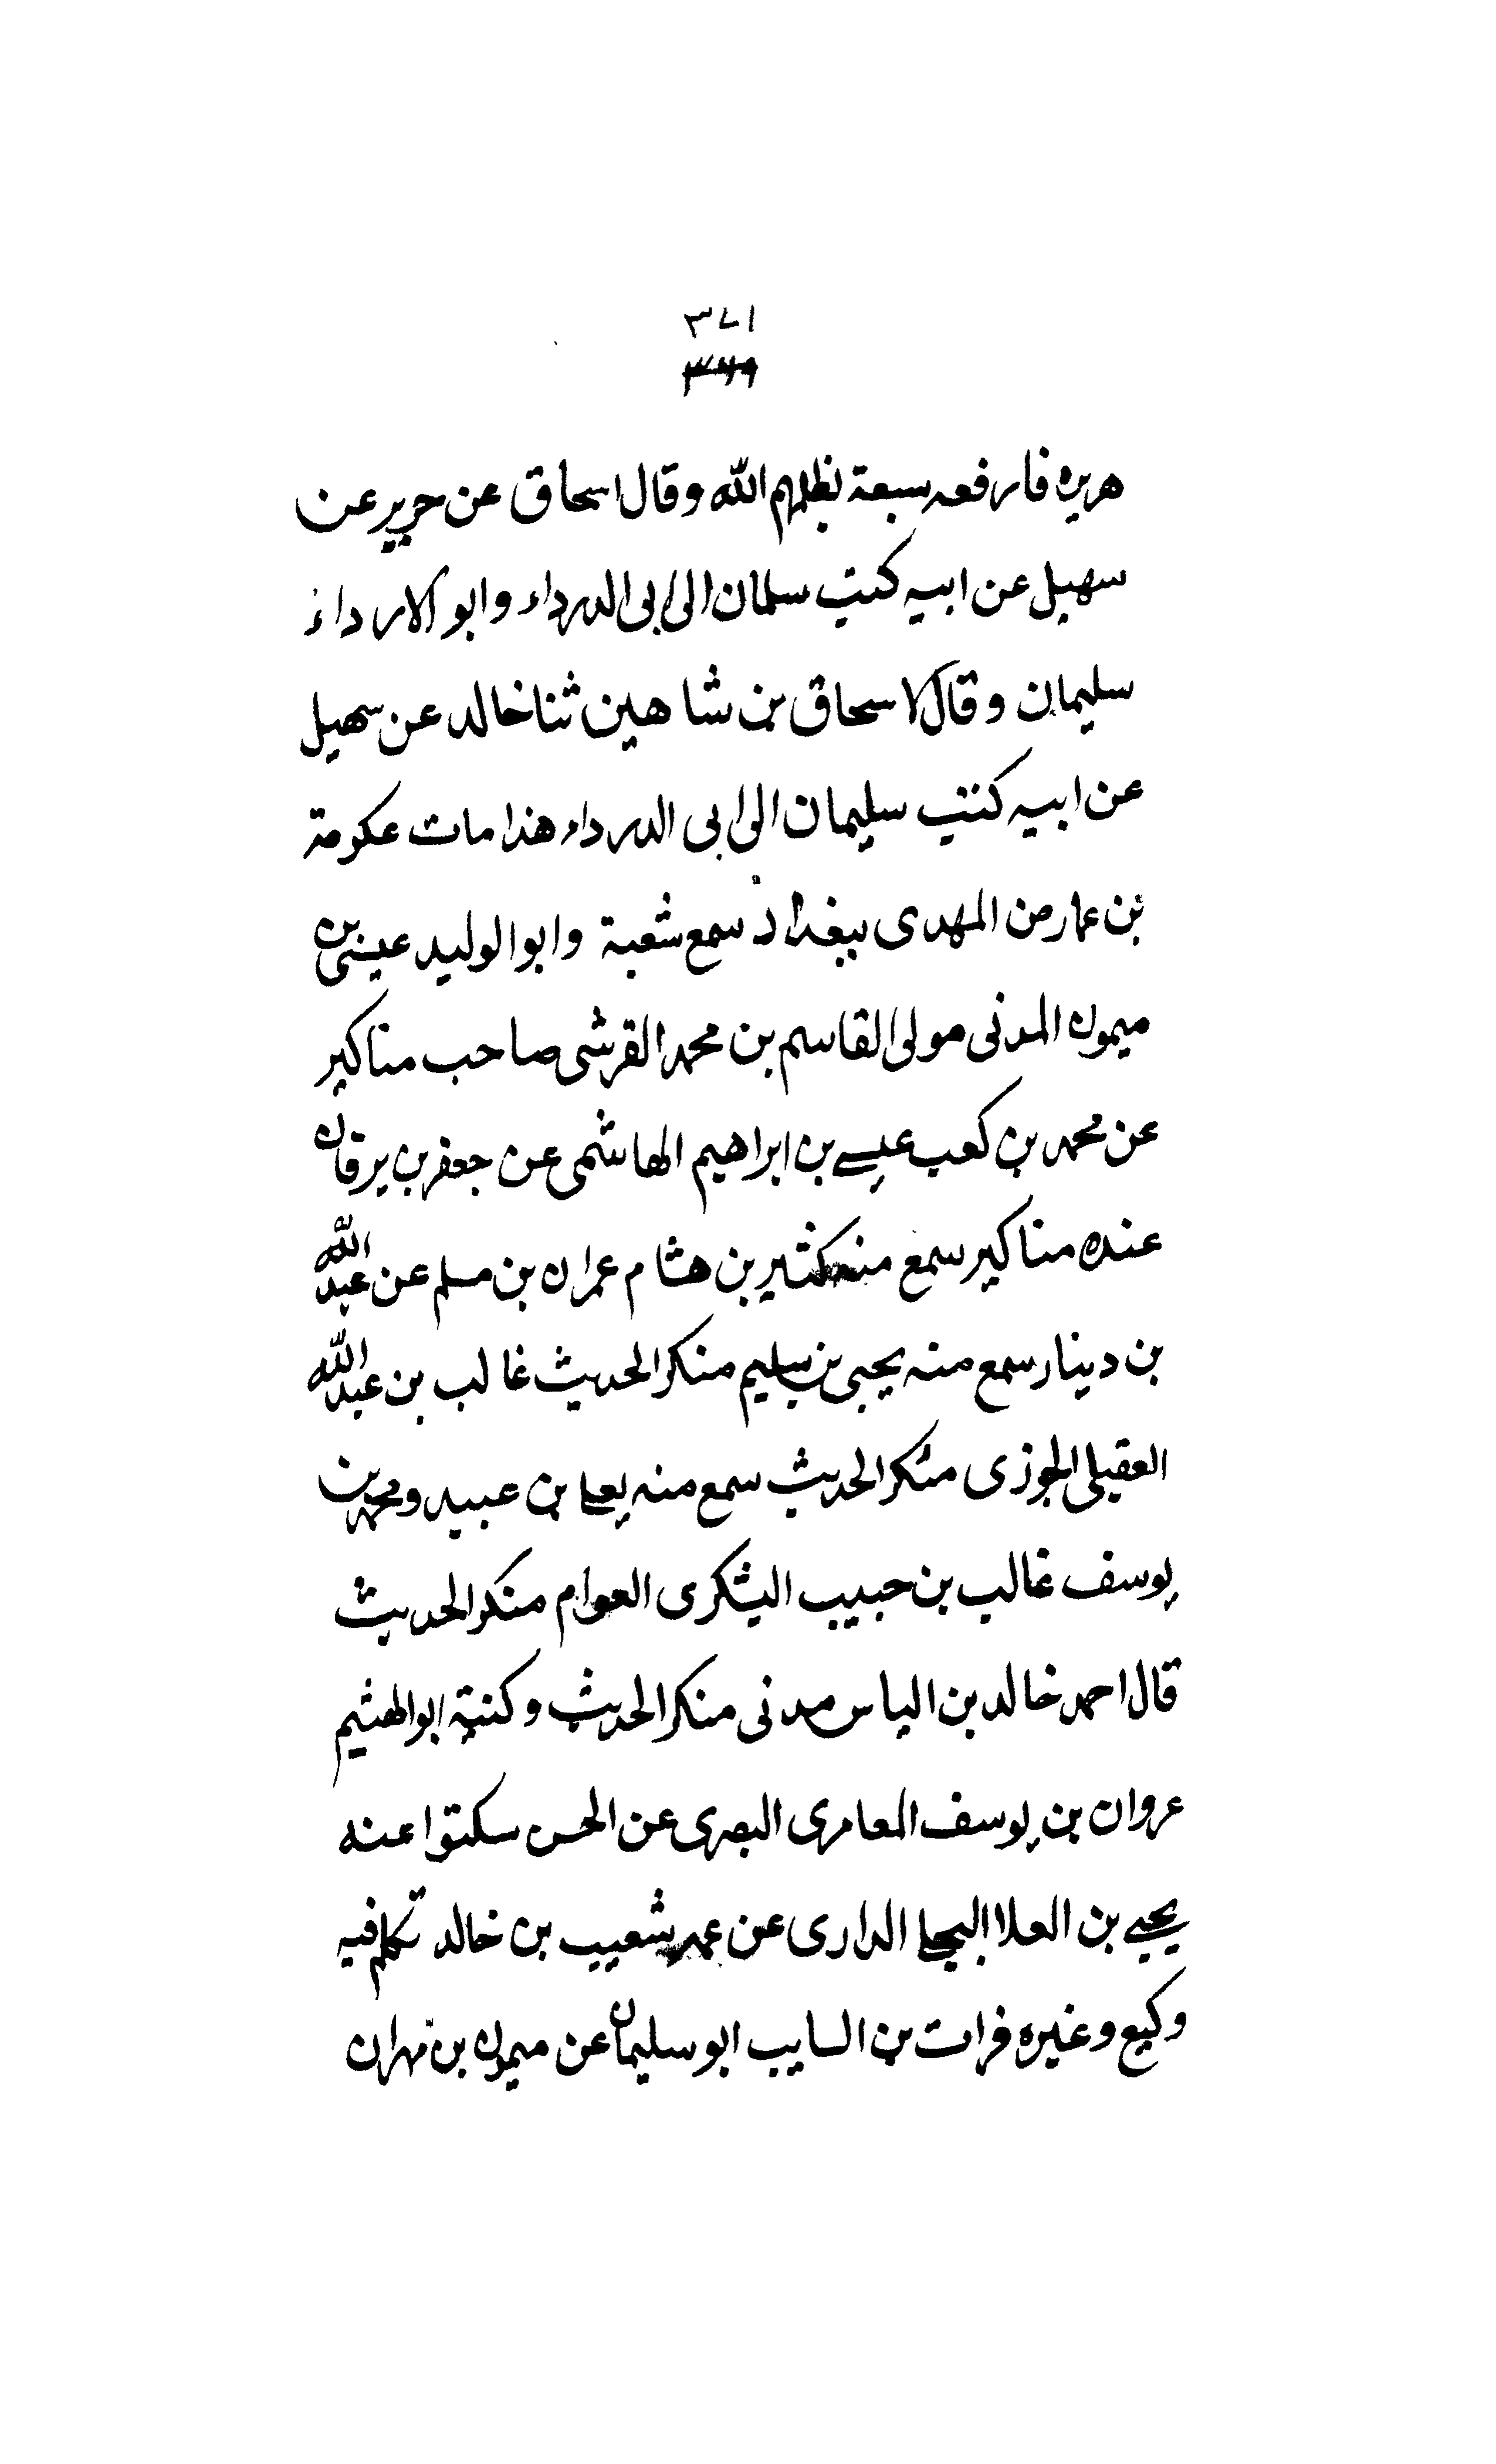 ٣٧١
٣٦٩
هريره فارفعه سبعة نظلهم الله وقال اسحاق عن جرير عن
سهيل عن ابيه كتب سلمان الى ابى الدرداء وابو الارداء
سليمان وقال لا سحاق بن شاهين ثنا خالد عن سهيل
عن ابيه كتب سليمان الى ابى الدرداء هذا مات عكرمة
بن عمار من المهدى ببغداد سمع شعبة وابو الوليد عيسى بن
ميمون المدنى مولى القاسم بن محمد القرشى صاحب مناكير
عن محمد بن كعب عيسے بن ابراهيم الهاشمى عن جعفر بن برقان
عنده مناكير سمع منه كثير بن هشام عمران بن مسلم عن عبد الله
بن دينار سمع منه يحيى بن سليم منكر الحديث غالب بن عبد الله
العقيلى الجوزى منكر الحديث سمع منه يعلى بن عبيد ومحمد بن
يوسف غالب بن حبيب اليشكرى العوام منكر الحديث
قال احمد خالد بن الياس مدنى منكر الحديث وكنية ابو الهثيم
عروان بن يوسف العامرى البصرى عن الحسن سكتوا عنه
يحيے بن العلا البجلى الدارى عن عمه شعيب بن خالد تكلم فيه
وكيع وغيره فرات بن السايب ابو سليمان عن ميمون بن مهران